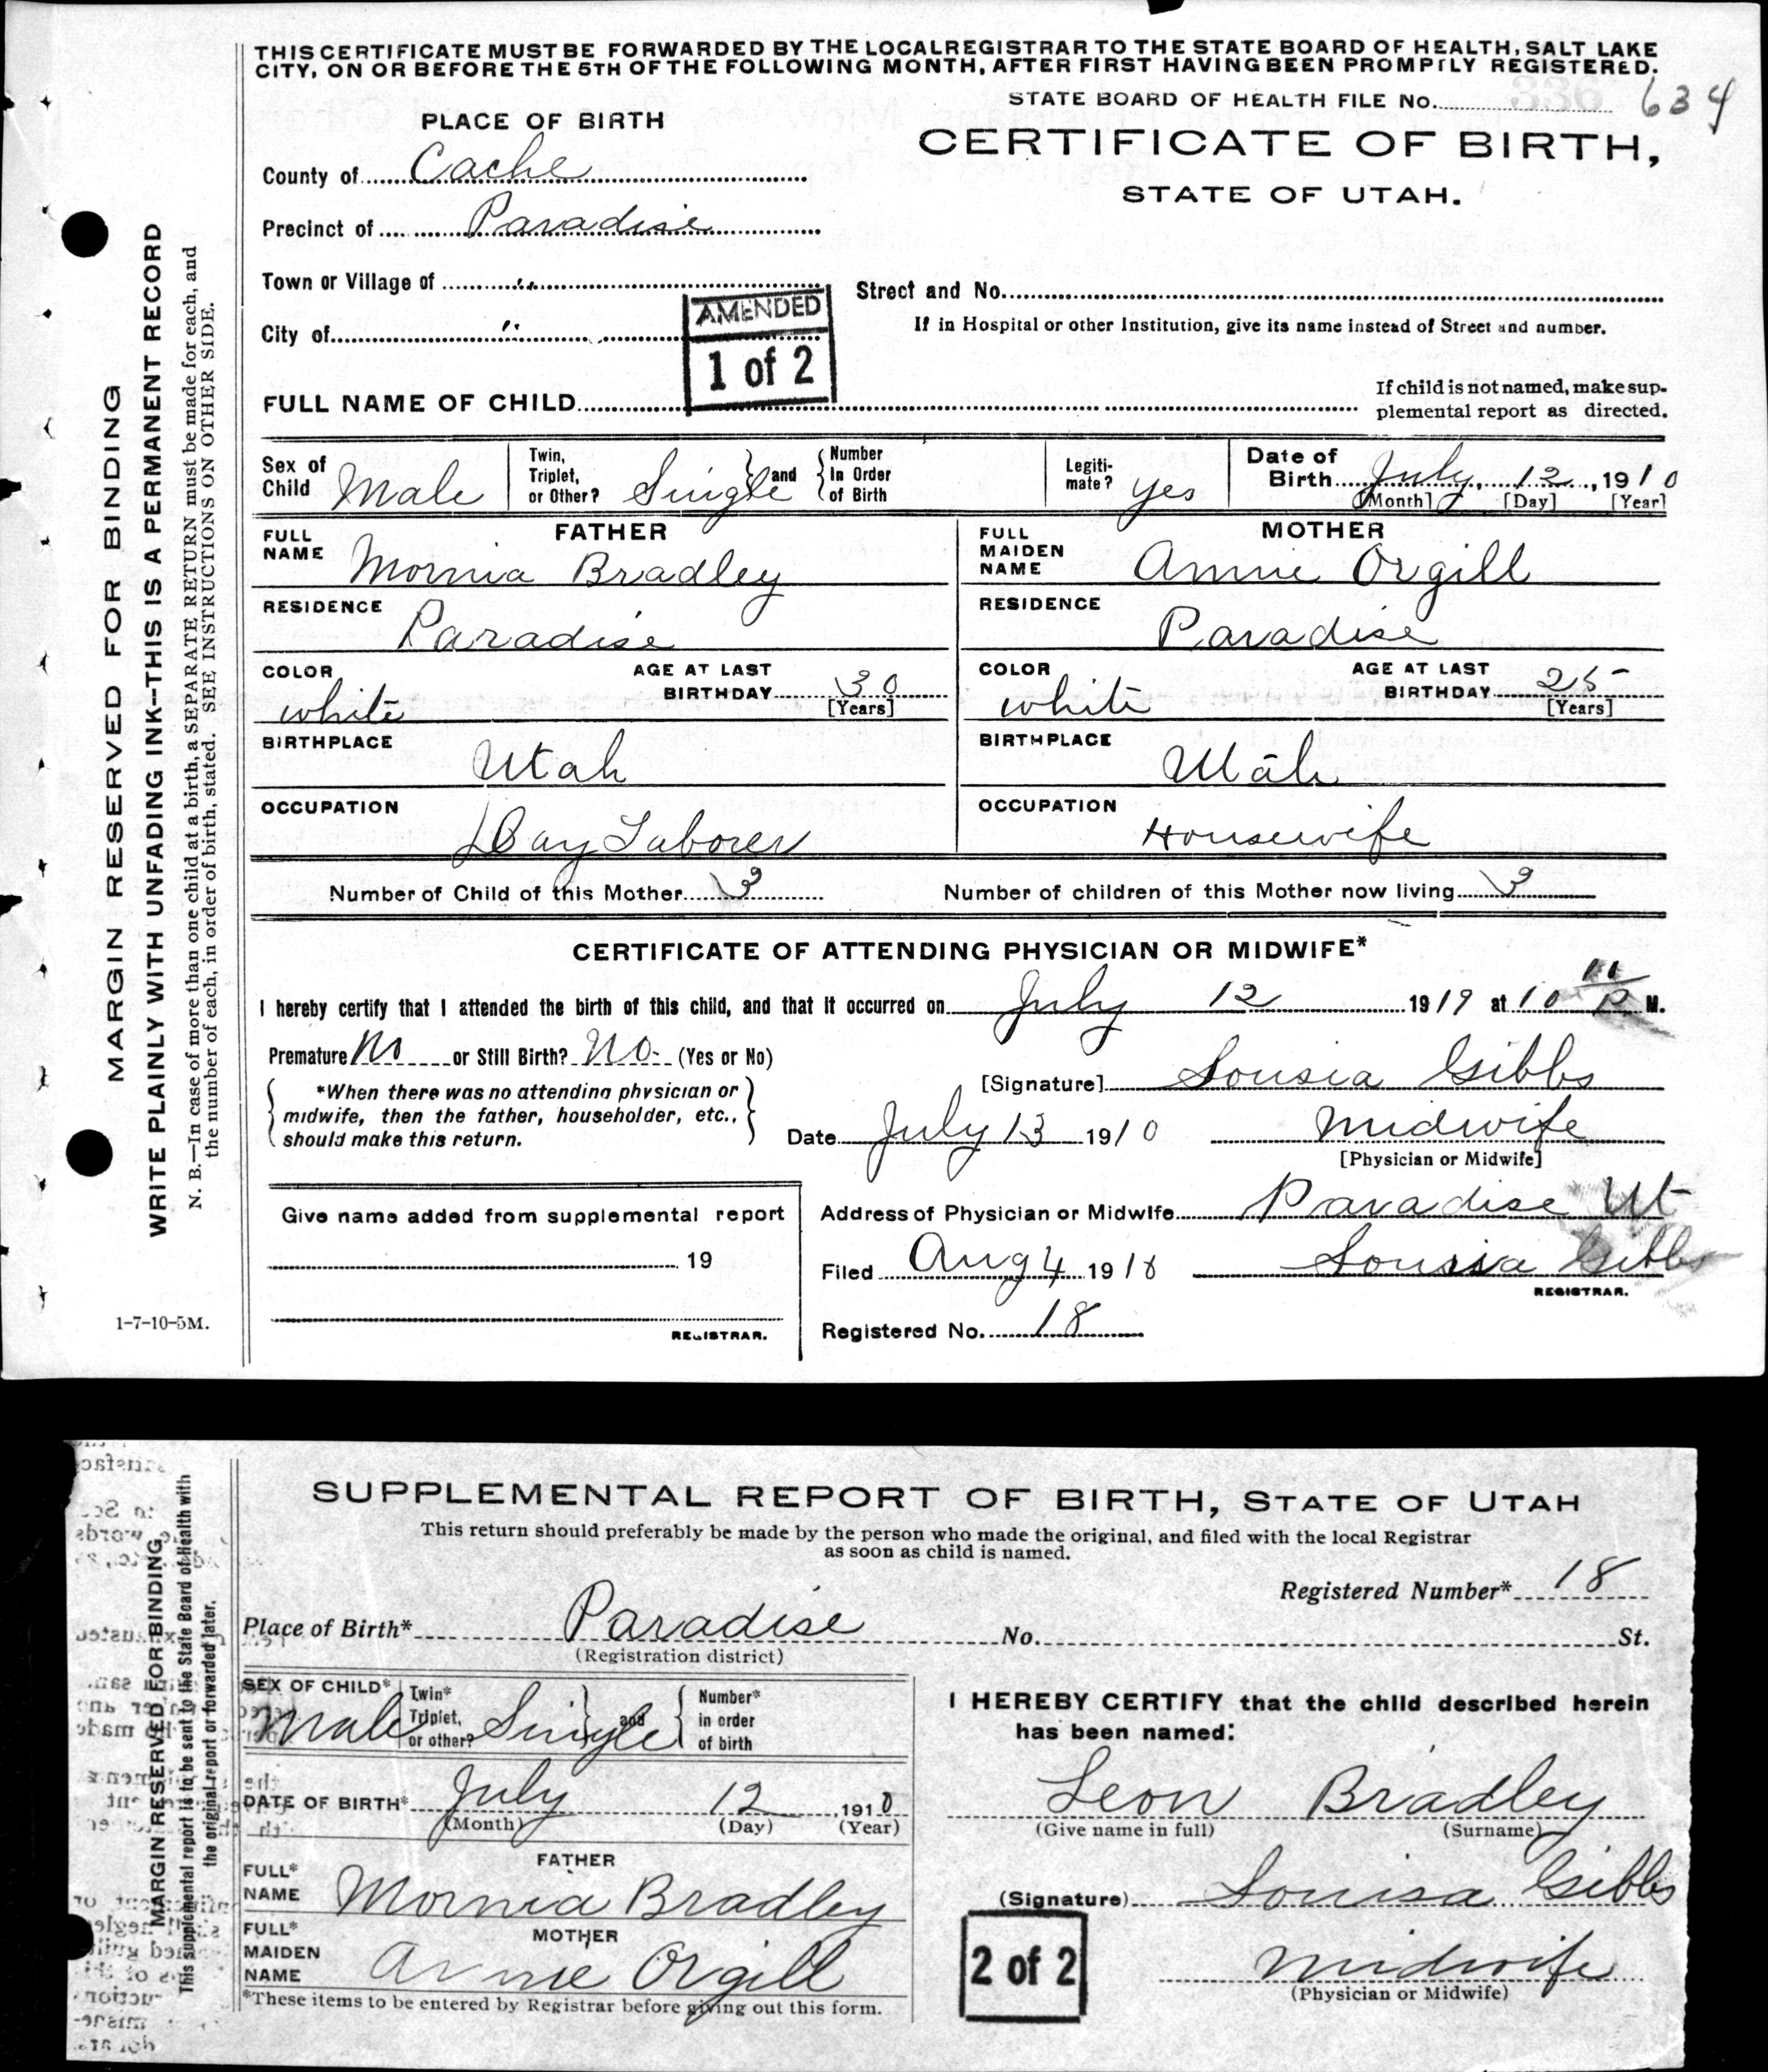 THIS CERTIFICATE MUST BE FORWARDED BY THE LOCAL REGISTRAR TO THE STATE BOARD OF HEALTH, SALT LAKE
CITY, ON OR BEFORE THE 5TH OF THE FOLLOWING MONTH, AFTER FIRST HAVING BEEN PROMPTLY REGISTERED.
STATE BOARD OF HEALTH FILE No. 336 634
PLACE OF BIRTH
CERTIFICATE OF BIRTH,
STATE OF UTAH.
County of Cache
Precinct of Paradise
Town or Village of "
Street and No.
City of "
If in Hospital or other Institution, give its name instead of Street and number.
AMENDED
1 of 2
FULL NAME OF CHILD
If child is not named, make sup-
plemental report as directed.
Sex of Child Male
Twin, Triplet, or Other? Single and Number In Order of Birth
Legiti-mate? yes
Date of Birth July 12, 1910
[Month] [Day] [Year]
FATHER
FULL NAME Mornia Bradley
RESIDENCE Paradise
COLOR white
AGE AT LAST BIRTHDAY 30
[Years]
BIRTHPLACE Utah
OCCUPATION Day Laborer
MOTHER
FULL MAIDEN NAME Annie Orgill
RESIDENCE Paradise
COLOR white
AGE AT LAST BIRTHDAY 25
[Years]
BIRTHPLACE Utah
OCCUPATION Housewife
Number of Child of this Mother 3
Number of children of this Mother now living 3
CERTIFICATE OF ATTENDING PHYSICIAN OR MIDWIFE*
I hereby certify that I attended the birth of this child, and that it occurred on July 12 1919 at 10 P M.
Premature No or Still Birth? No (Yes or No)
*When there was no attending physician or
midwife, then the father, householder, etc.,
should make this return.
[Signature] Lousia Gibbs
Date July 13 1910
Midwife
[Physician or Midwife]
Give name added from supplemental report
19
REGISTRAR.
Address of Physician or Midwife Paradise Ut
Filed Aug 4 1910
Lousia Gibbs
REGISTRAR.
Registered No. 18
MARGIN RESERVED FOR BINDING
WRITE PLAINLY WITH UNFADING INK—THIS IS A PERMANENT RECORD
N. B.—In case of more than one child at a birth, a SEPARATE RETURN must be made for each, and
the number of each, in order of birth, stated. SEE INSTRUCTIONS ON OTHER SIDE.
1-7-10-5M.
SUPPLEMENTAL REPORT OF BIRTH, STATE OF UTAH
This return should preferably be made by the person who made the original, and filed with the local Registrar
as soon as child is named.
Registered Number* 18
Place of Birth* Paradise No. St.
(Registration district)
SEX OF CHILD* Male
Twin* Triplet, or other? Single and Number* in order of birth
DATE OF BIRTH* July 12, 1910
(Month) (Day) (Year)
FATHER
FULL* NAME Mornia Bradley
MOTHER
FULL* MAIDEN NAME Annie Orgill
*These items to be entered by Registrar before giving out this form.
I HEREBY CERTIFY that the child described herein
has been named:
Leon Bradley
(Give name in full) (Surname)
(Signature) Louisa Gibbs
2 of 2
Midwife
(Physician or Midwife)
MARGIN RESERVED FOR BINDING
This supplemental report is to be sent to the State Board of Health with
the original report or forwarded later.